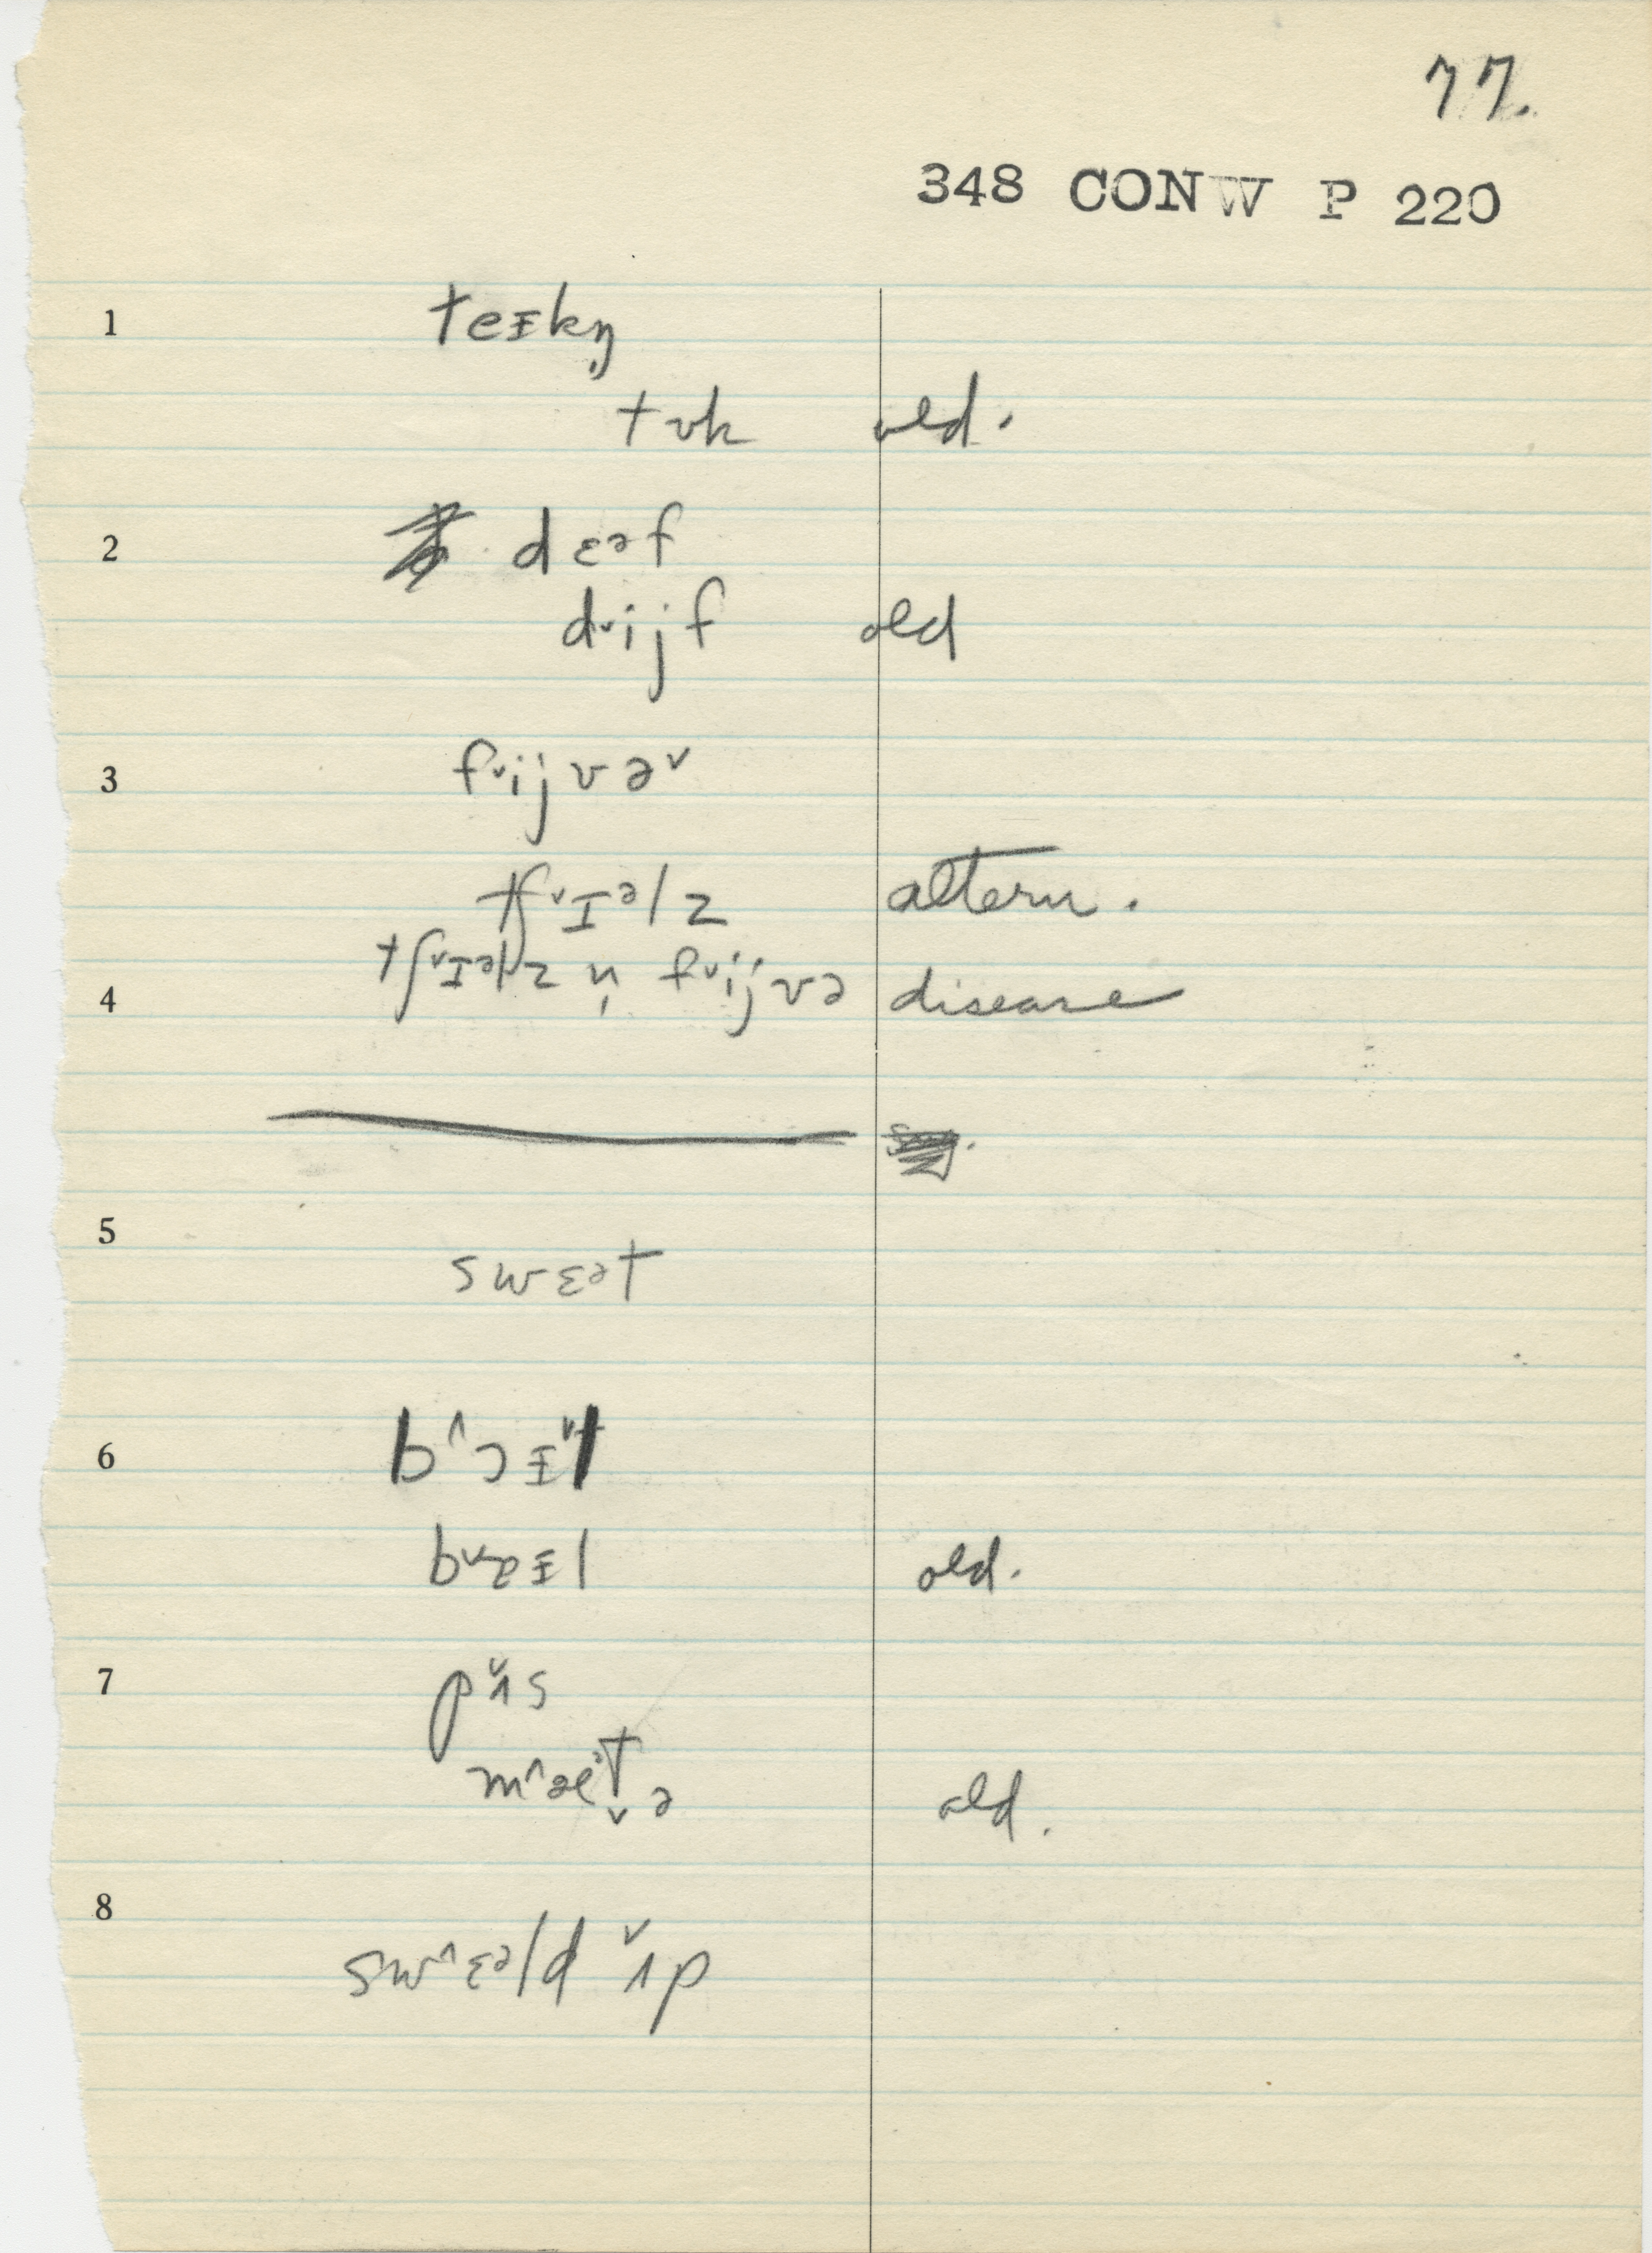 77.
348 CONW P 220
1 teɪkŋ̩
tʊk old.
2 dɛᵊf
dᵛijf old
3 fᵛijvəᵛ
tʃᵛɪᵊlz altern.
4 tʃᵛɪᵊlz n̩ fᵛijvə disease
5 swɛət
6 b^ɔɪᵛl
old.
7 pʌ̌s
old.
8 sw^ɛᵊld ʌ̌p